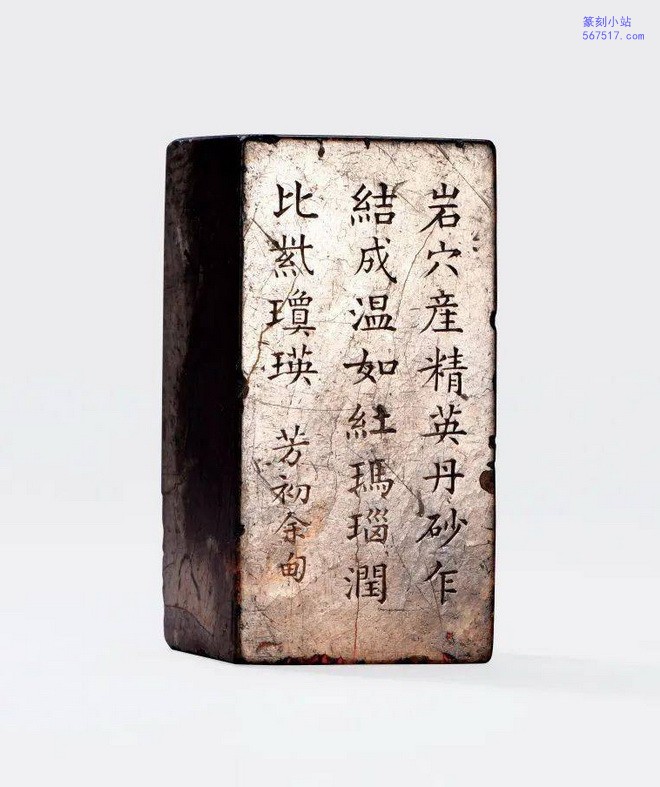 篆刻小站
567517.com
岩穴産精英丹砂乍
結成温如紅瑪瑙潤
比紫瓊瑛 芳初余甸